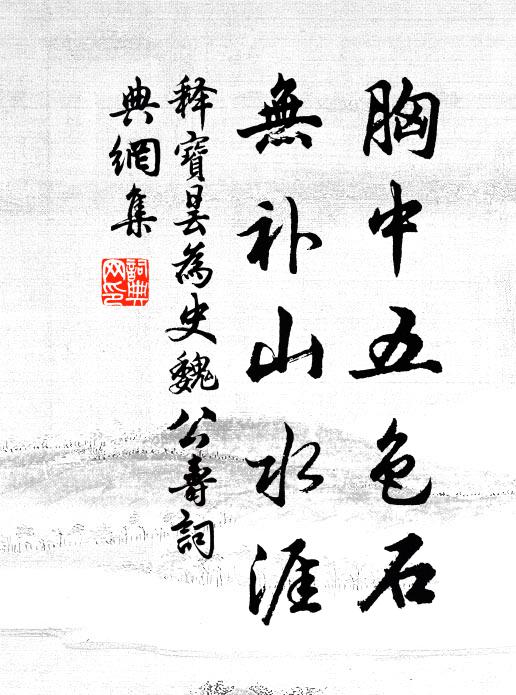 胸中五色石
無补山水涯
释寶昙為史魏公壽詞
典網集
詞典网印